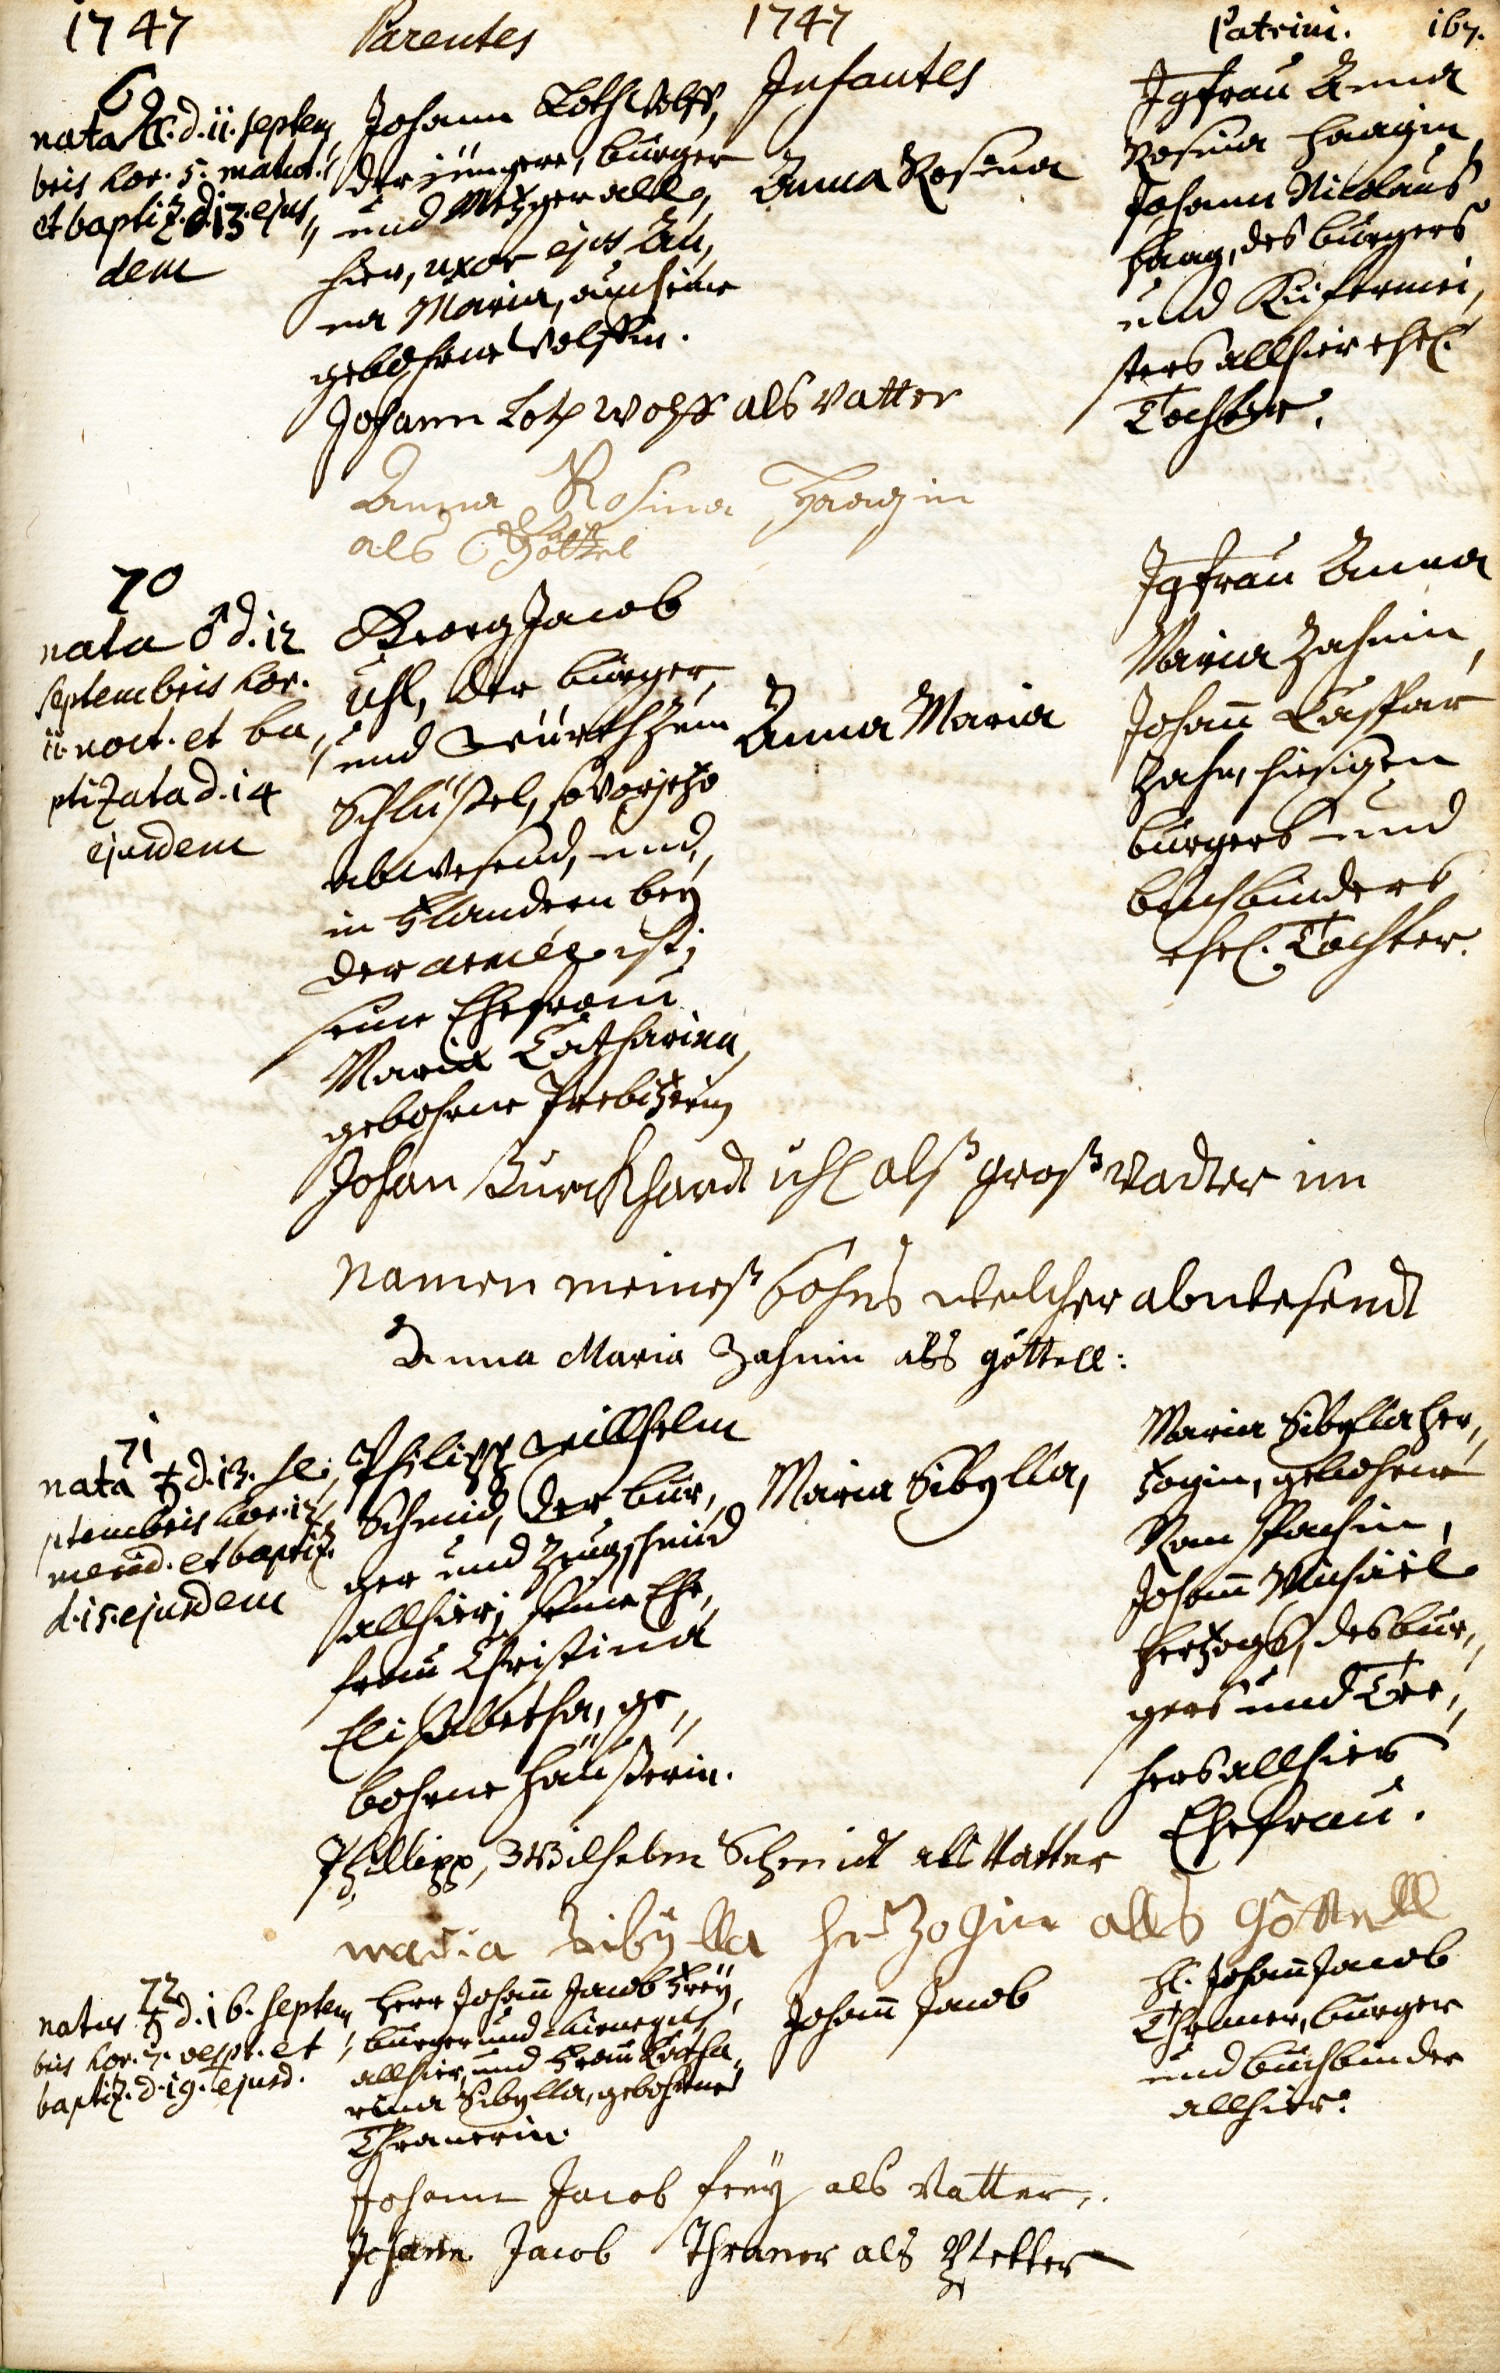 1747 Parentes 1747 Patrini. 167.
Infantes
6
nata d. 11. Septem,
bris hor. 5. matut.
et baptiz. d. 13. ejus,,
dem
Johann Loth Wolff,
der jüngere, burger
und Metzger all,
hier, uxor ejus An,
na Maria, auch eine
gebohrne Wolffin.
Anna Rosina
Jgfrau Anna
Rosina Haagin,
Johann Nicolaus
Haag, des burgers
und Kiefermei,
sters allhier ehel.
Tochter.
Johann Loth Wolff als Vatter
Anna Rosina Haagin
als Göttel
70
nata ♂ d. 12
Septembris hor.
11. noct. et ba,
ptizata d. 14
ejusdem
Georg Jacob
Uhl, der burger,
und Würth zum
Schlüßel, so vorjetzo
abwesend, und,
in Flandern bey
der armée ist;
seine Ehefrau
Maria Catharina,
gebohrne Prebitzerin
Anna Maria
Jgfrau Anna
Maria Zahnin,
Johann Caspar
Zahn, hiesigen
burgers und
buchbinders
ehel. Tochter.
Johan Burckhardt Uhl alß großvadter im
Namen meineß Sohns welcher abwesendt
Anna Maria Zahnin als göttell:
71
nata ☿ d. 13. Se,
ptembris hor. 12
merid. et baptiz.
d. 15. ejusdem
Philipp Willhelm
Schmid, der bur,
ger und Zeugschmid
allhier; seine Ehe,
frau Christina
Elisabetha, ge,,
bohrne Häußerin.
Maria Sibylla,
Maria Sibylla Her,,
tzogin, gebohrne
Johann Michael
Hertzogs, des bur,,
gers und
hers allhier
Ehefrau.
Phillipp, Wilhelm Schmidt als Vatter
maria Sibÿlla Hertzogin alls Göttell
72
natus ♄ d. 16. Septem,
bris hor. 7. vespt. et
baptiz. d. 19. ejusd.
Herr Johann Jacob Frey,
burger und Chirurgus
allhier, und Frau Catha,
rina Sibylla, gebohrne
Thranerin.
Johann Jacob
H. Johann Jacob
Thraner, burger
und buchbinder
allhier.
Johann Jacob frey als Vatter,.
Johann Jacob Thraner als Pfetter